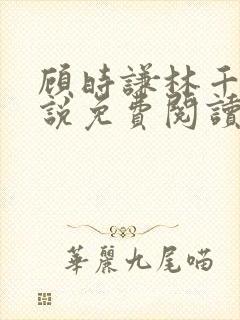 顾時謙林千
說免費閱讀
華麗九尾喵